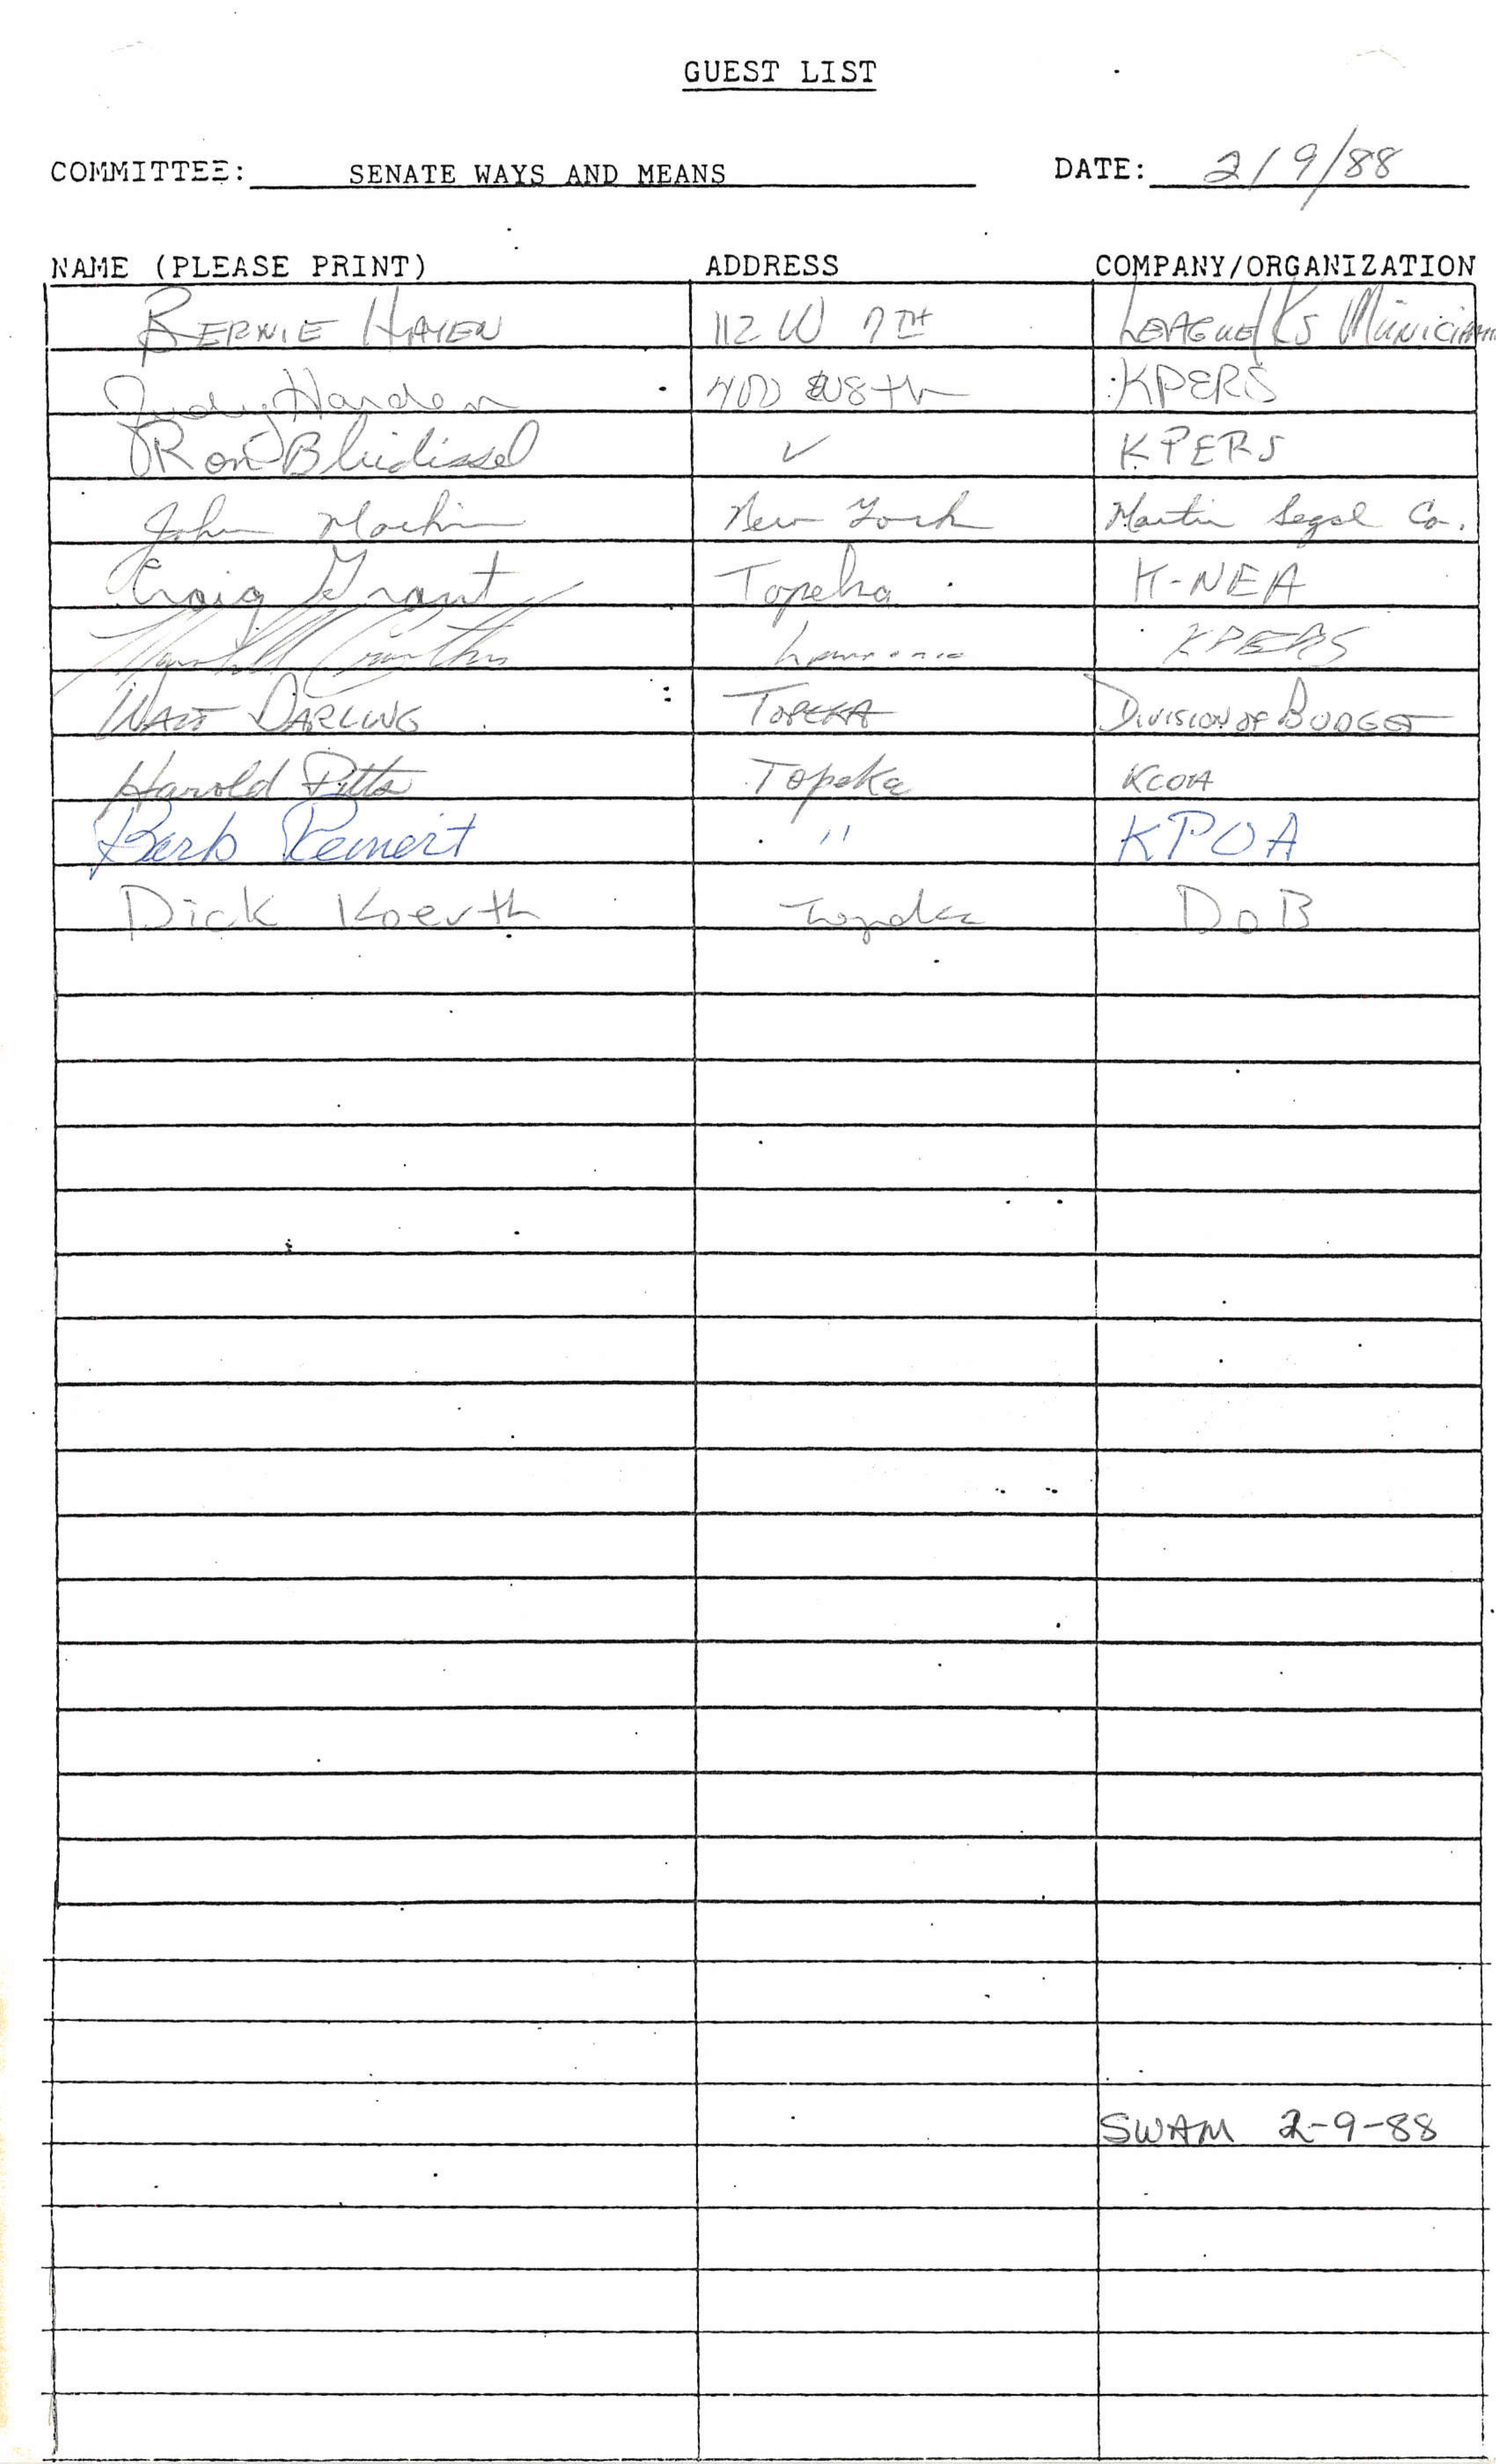 GUEST LIST
COMMITTEE: SENATE WAYS AND MEANS DATE: 2/9/88
NAME (PLEASE PRINT) ADDRESS COMPANY/ORGANIZATION
BERNIE HAYEN 112 W 7TH LEAGUE/KS
Judy Harden 400 8th KPERS
Ron KPERS
John New York Martin Segal Co.
Craig Grant Topeka K-NEA
Marshall Crowther Lawrence KPERS
WALT DARLING TOPEKA DIVISION OF BUDGET
Harold Pitts Topeka KCOA
Barb Reinert " KPOA
Dick Koerth Topeka DoB
SWAM 2-9-88